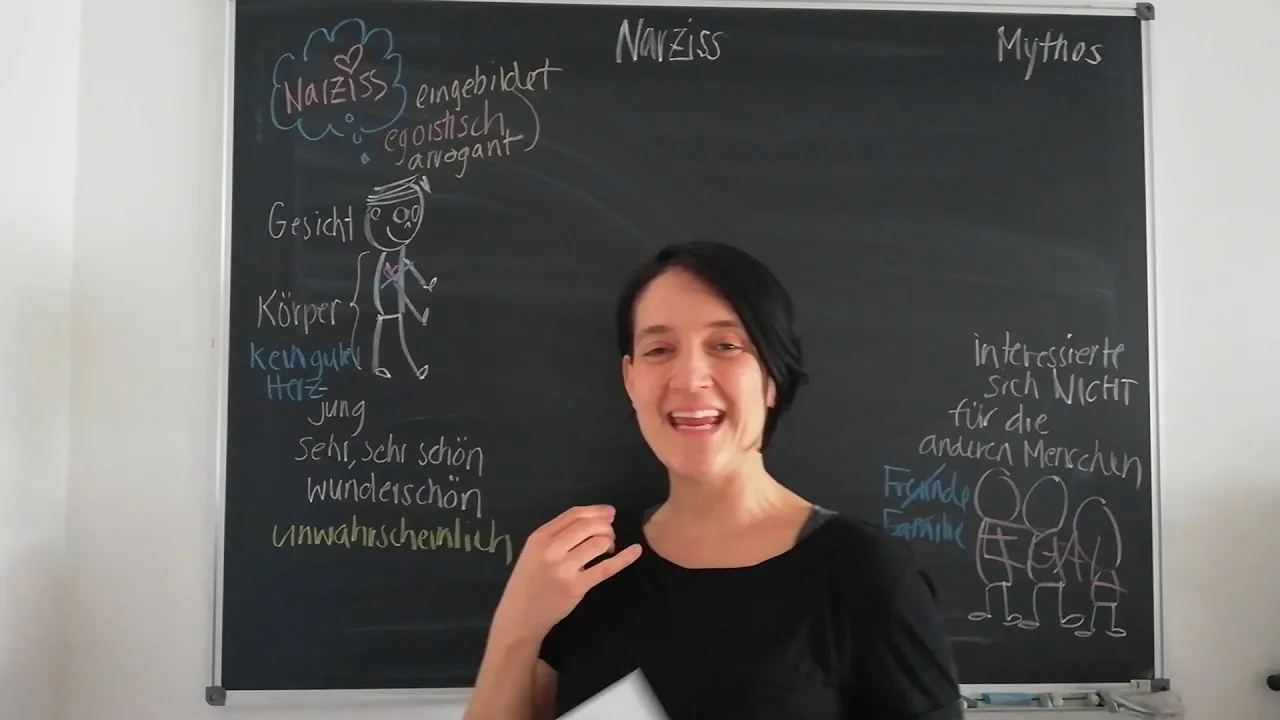 Narziss
Mythos
Narziss
eingebildet
egoistisch
arrogant
Gesicht
Körper
kein gutes
Herz
jung
sehr, sehr schön
wunderschön
unwahrscheinlich
interessierte
sich NICHT
für die
anderen Menschen
Freunde
Familie
EGAL